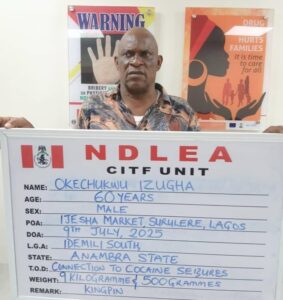 WARNING
DRUG
HURTS
FAMILIES
It is time
to care
for all
NDLEA
CITF UNIT
NAME: OKECHUKWU IZUGHA
AGE: 60 YEARS
SEX: MALE
POA: IJESHA MARKET, SURULERE, LAGOS
DOA: 9TH JULY, 2025
L.G.A: IDEMILI SOUTH
STATE: ANAMBRA STATE
T.O.D: CONNECTION TO COCAINE SEIZURES
WEIGHT: 9 KILOGRAMME & 500 GRAMMES
REMARK: KINGPIN